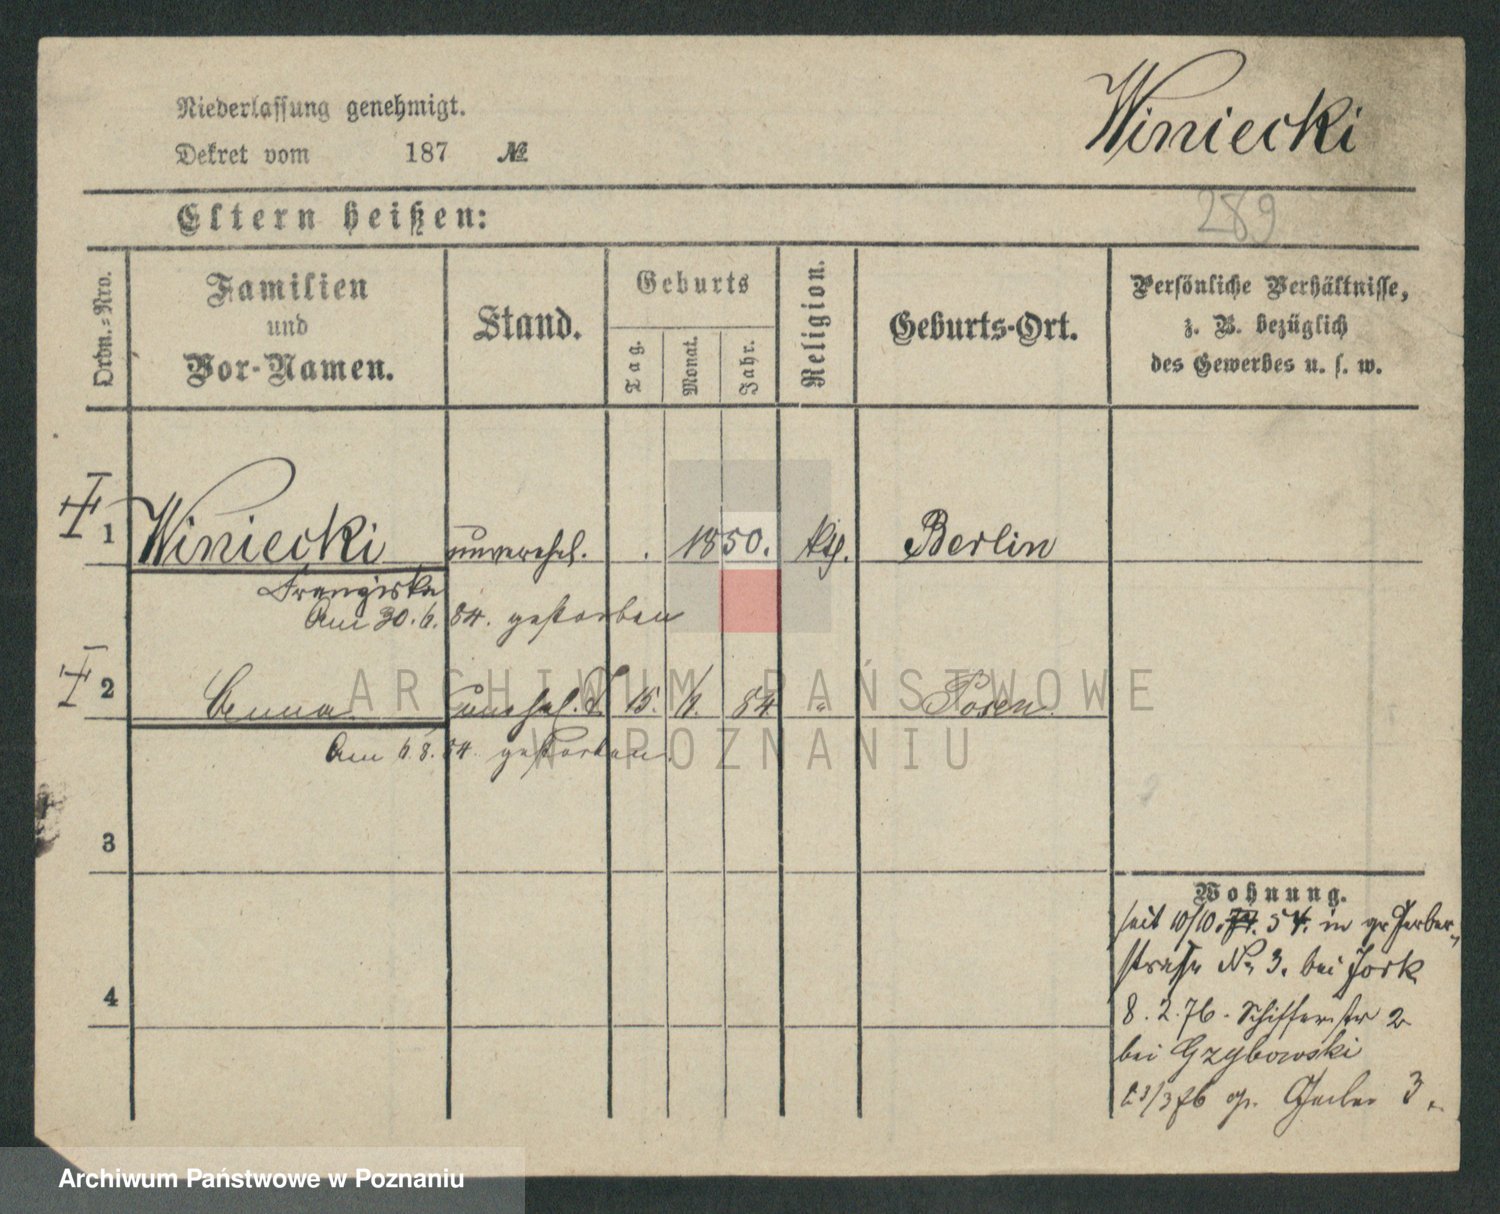 Winiecki
Niederlassung genehmigt.
Dekret vom 187 №
289
Eltern heißen:
Ordn.=Nro.
Familien
und
Vor-Namen.
Stand.
Geburts
Tag.
Monat.
Jahr.
Religion.
Geburts-Ort.
Persönliche Verhältnisse,
z. B. bezüglich
des Gewerbes u. s. w.
1 Winiecki unverehel. 1850. kth. Berlin
Franziska
Am 30. 6. 84. gestorben
2 Anna unehel. T. 15. 6. 84 " Posen
Am 6. 8. 84. gestorben
3
4
Wohnung.
seit 10/10. 74. 54. in gr Gerber-
straße No 3. bei Jork
8. 2. 76. Schifferstr 2
bei Grzybowski
23/3 76 gr. Gerber 3.
ARCHIWUM PAŃSTWOWE
W POZNANIU
Archiwum Państwowe w Poznaniu